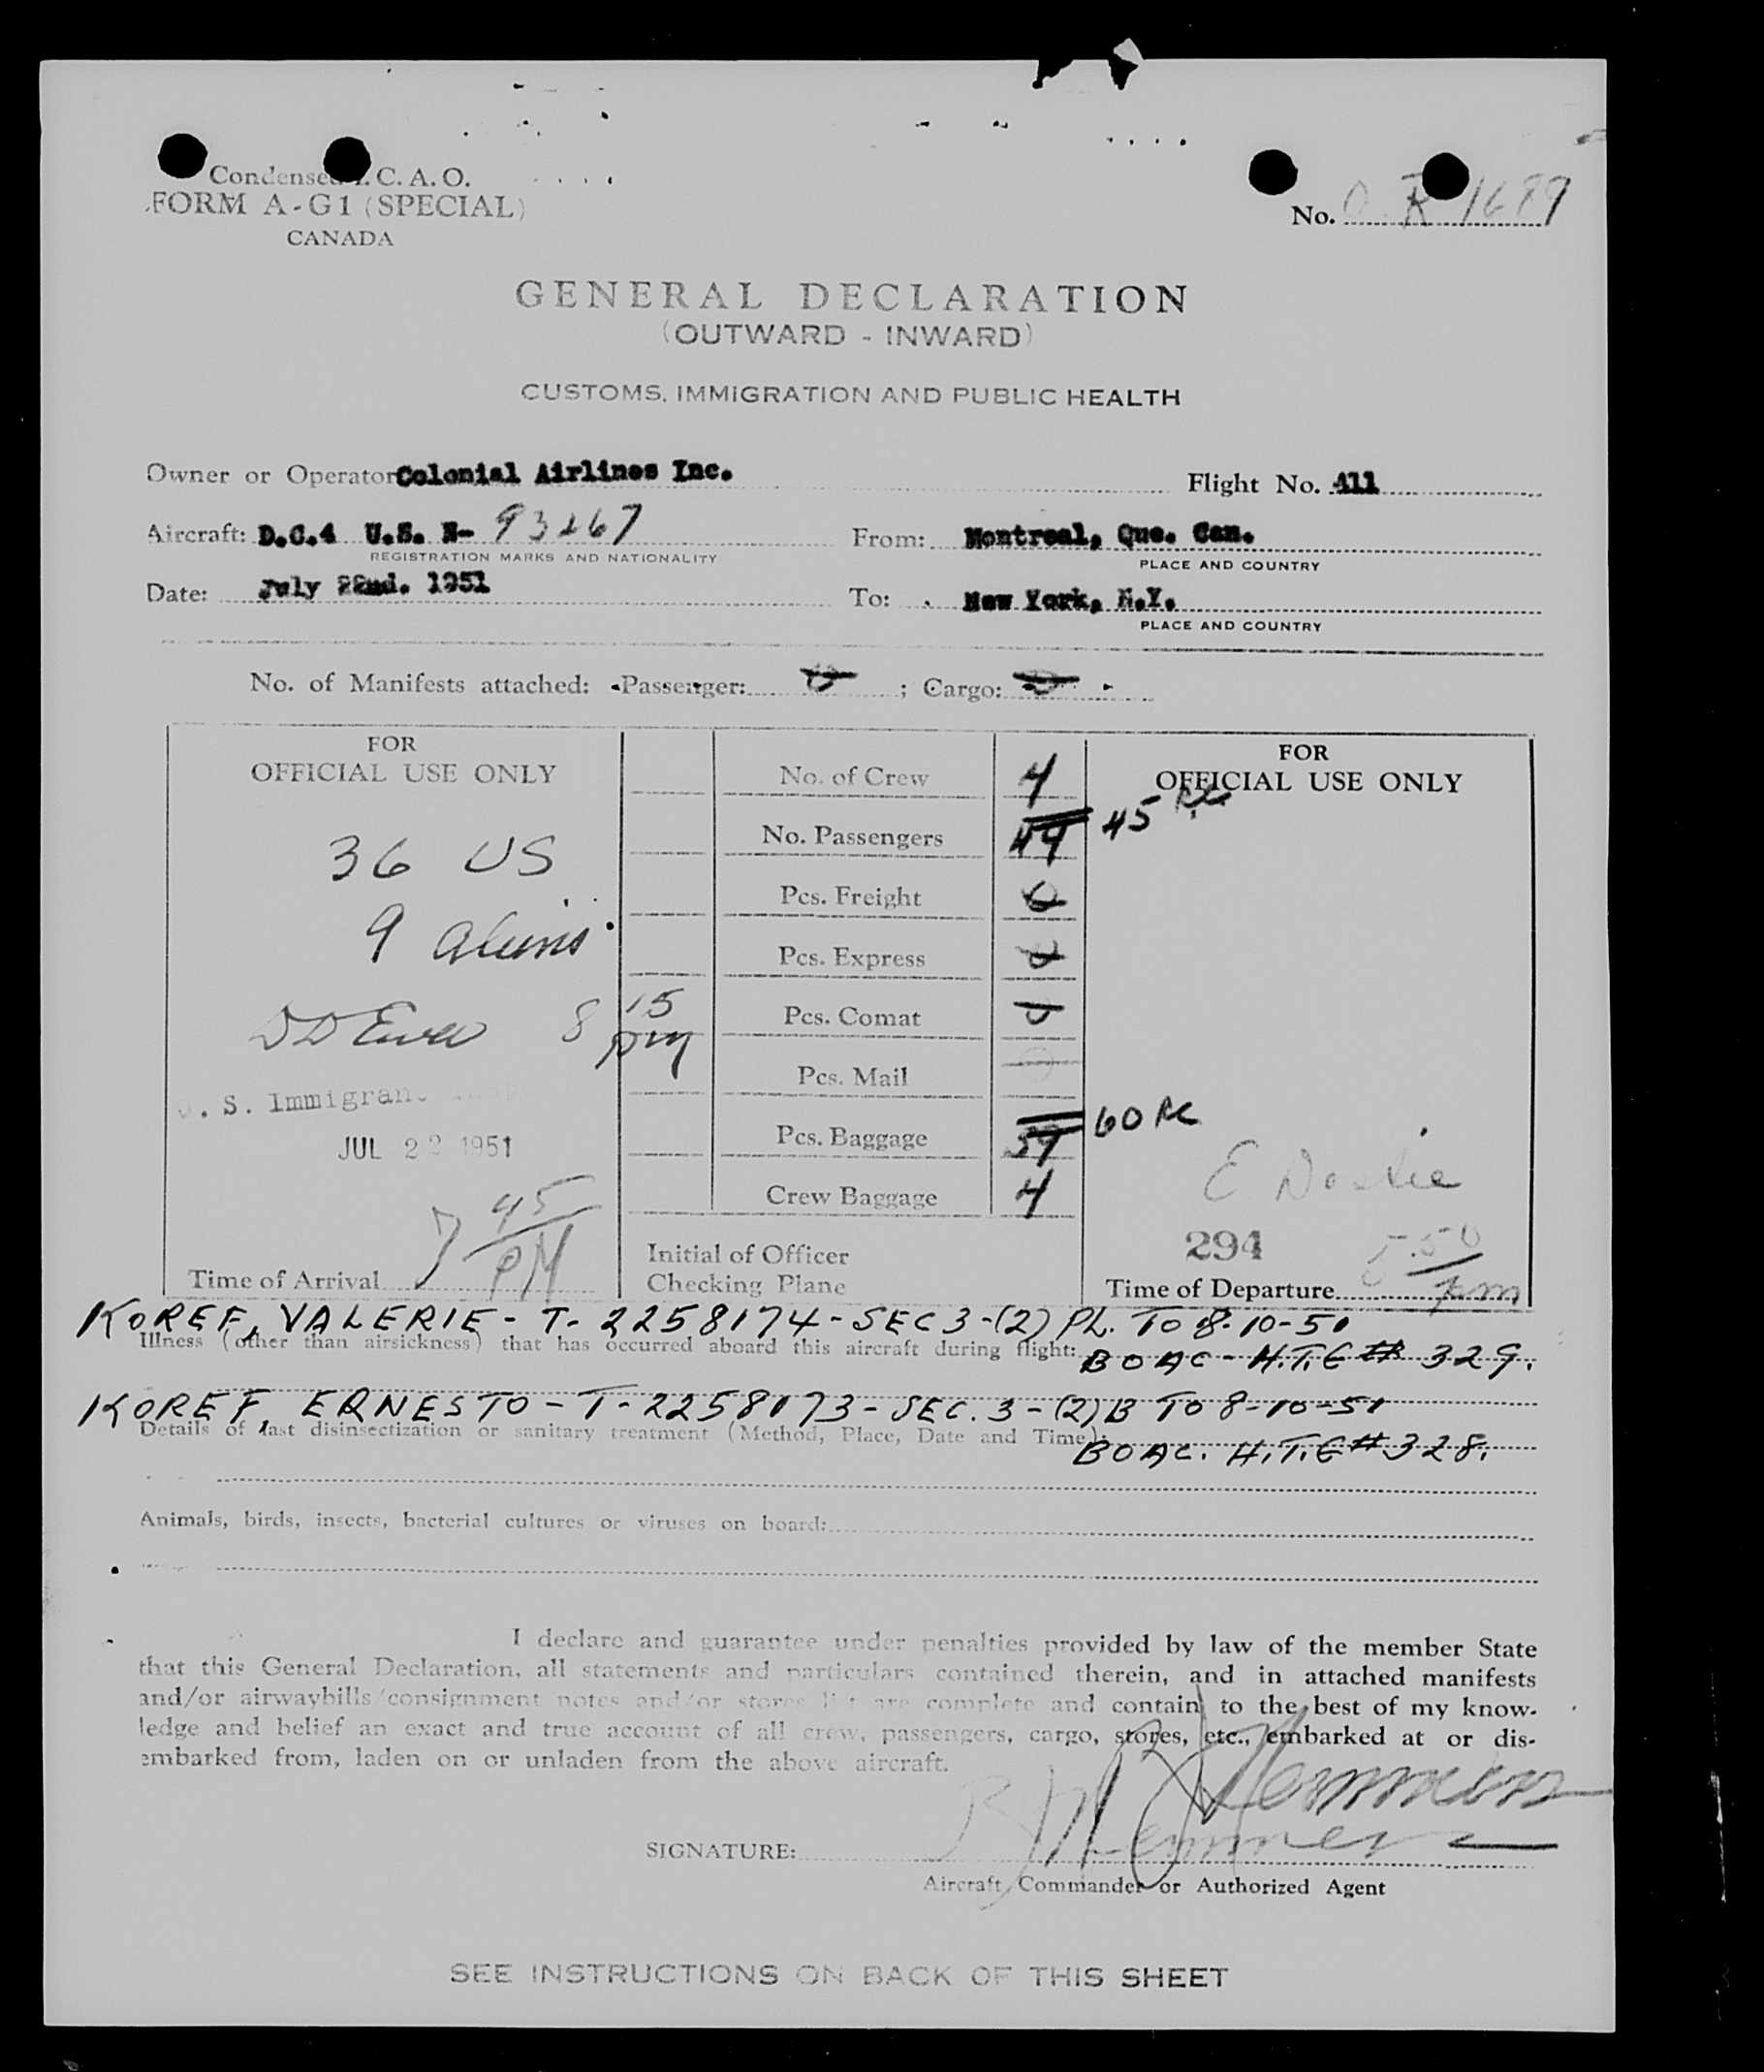 Condensed I.C.A.O.
FORM A-G1 (SPECIAL)
CANADA
No. O R 1689
GENERAL DECLARATION
(OUTWARD - INWARD)
CUSTOMS, IMMIGRATION AND PUBLIC HEALTH
Owner or Operator Colonial Airlines Inc. Flight No. A11
Aircraft: D.C.4 U.S. N- 93267 From: Montreal, Que. Can.
REGISTRATION MARKS AND NATIONALITY PLACE AND COUNTRY
Date: July 22nd. 1951 To: New York, N.Y.
PLACE AND COUNTRY
No. of Manifests attached: Passenger: 0 ; Cargo: 0
FOR
OFFICIAL USE ONLY
36 US
9 aliens
8 15 pm
U.S. Immigrant
JUL 22 1951
Time of Arrival 7 45 PM
No. of Crew 4
No. Passengers 44 45
Pcs. Freight 0
Pcs. Express 0
Pcs. Comat 0
Pcs. Mail
Pcs. Baggage 59 60 RC
Crew Baggage 4
Initial of Officer
Checking Plane
FOR
OFFICIAL USE ONLY
E Dostie
294
Time of Departure 5.50 pm
KOREF, VALERIE - T-2258174-SEC3-(2) PL. TO 8-10-51
Illness (other than airsickness) that has occurred aboard this aircraft during flight:
BOAC - H.T.C # 329.
KOREF, ERNESTO - T-2258173-SEC. 3-(2)B TO 8-10-51
Details of last disinsectization or sanitary treatment (Method, Place, Date and Time):
BOAC. H.T.C # 328.
Animals, birds, insects, bacterial cultures or viruses on board:
I declare and guarantee under penalties provided by law of the member State
that this General Declaration, all statements and particulars contained therein, and in attached manifests
and/or airwaybills/consignment notes and/or stores list are complete and contain to the best of my know-
ledge and belief an exact and true account of all crew, passengers, cargo, stores, etc., embarked at or dis-
embarked from, laden on or unladen from the above aircraft.
SIGNATURE:
Aircraft Commander or Authorized Agent
SEE INSTRUCTIONS ON BACK OF THIS SHEET